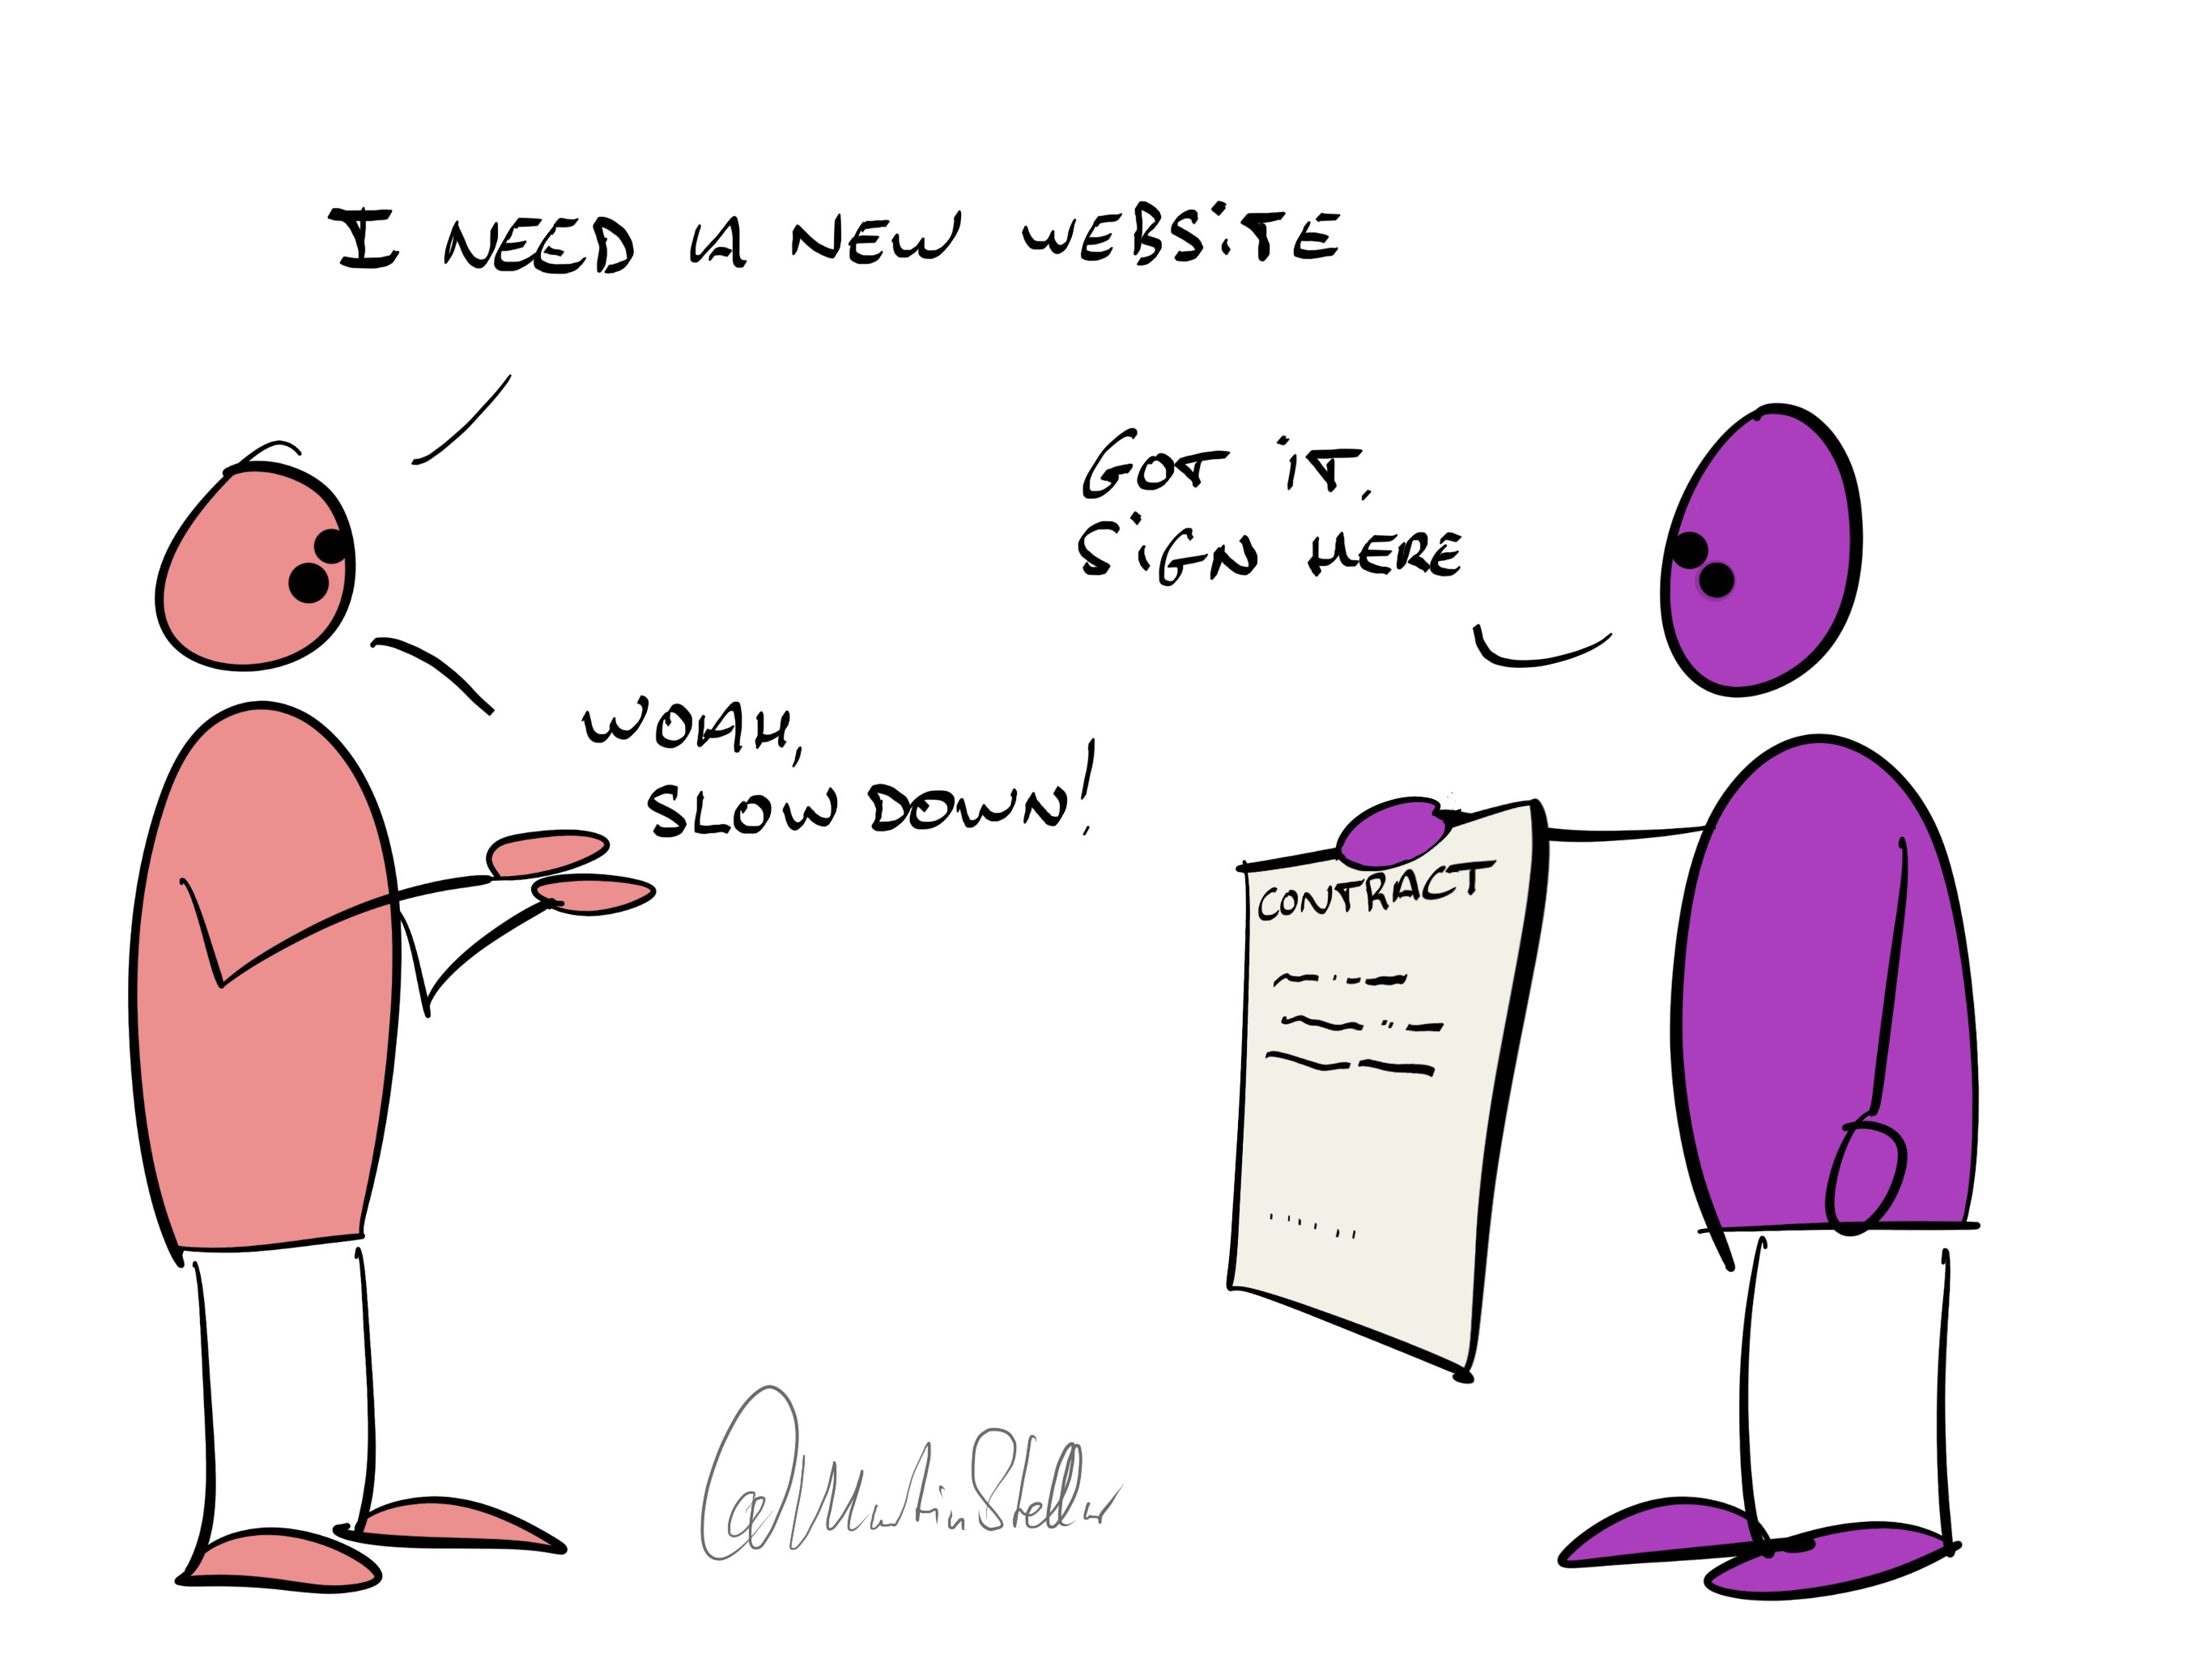 I NEED A NEW WEBSiTE
GOT iT,
SiGN HERE
WOAH,
SLOW DOWN!
CONTRACT
@MartinStellar